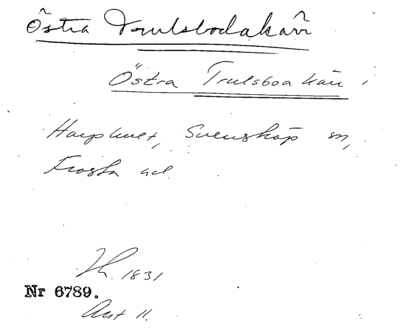 Östra Trulsbodakärr
Östra Trulsboa kärr
Harphult, Svensköp sn,
Frosta hd.
1831
Nr 6789.
Ant 11.